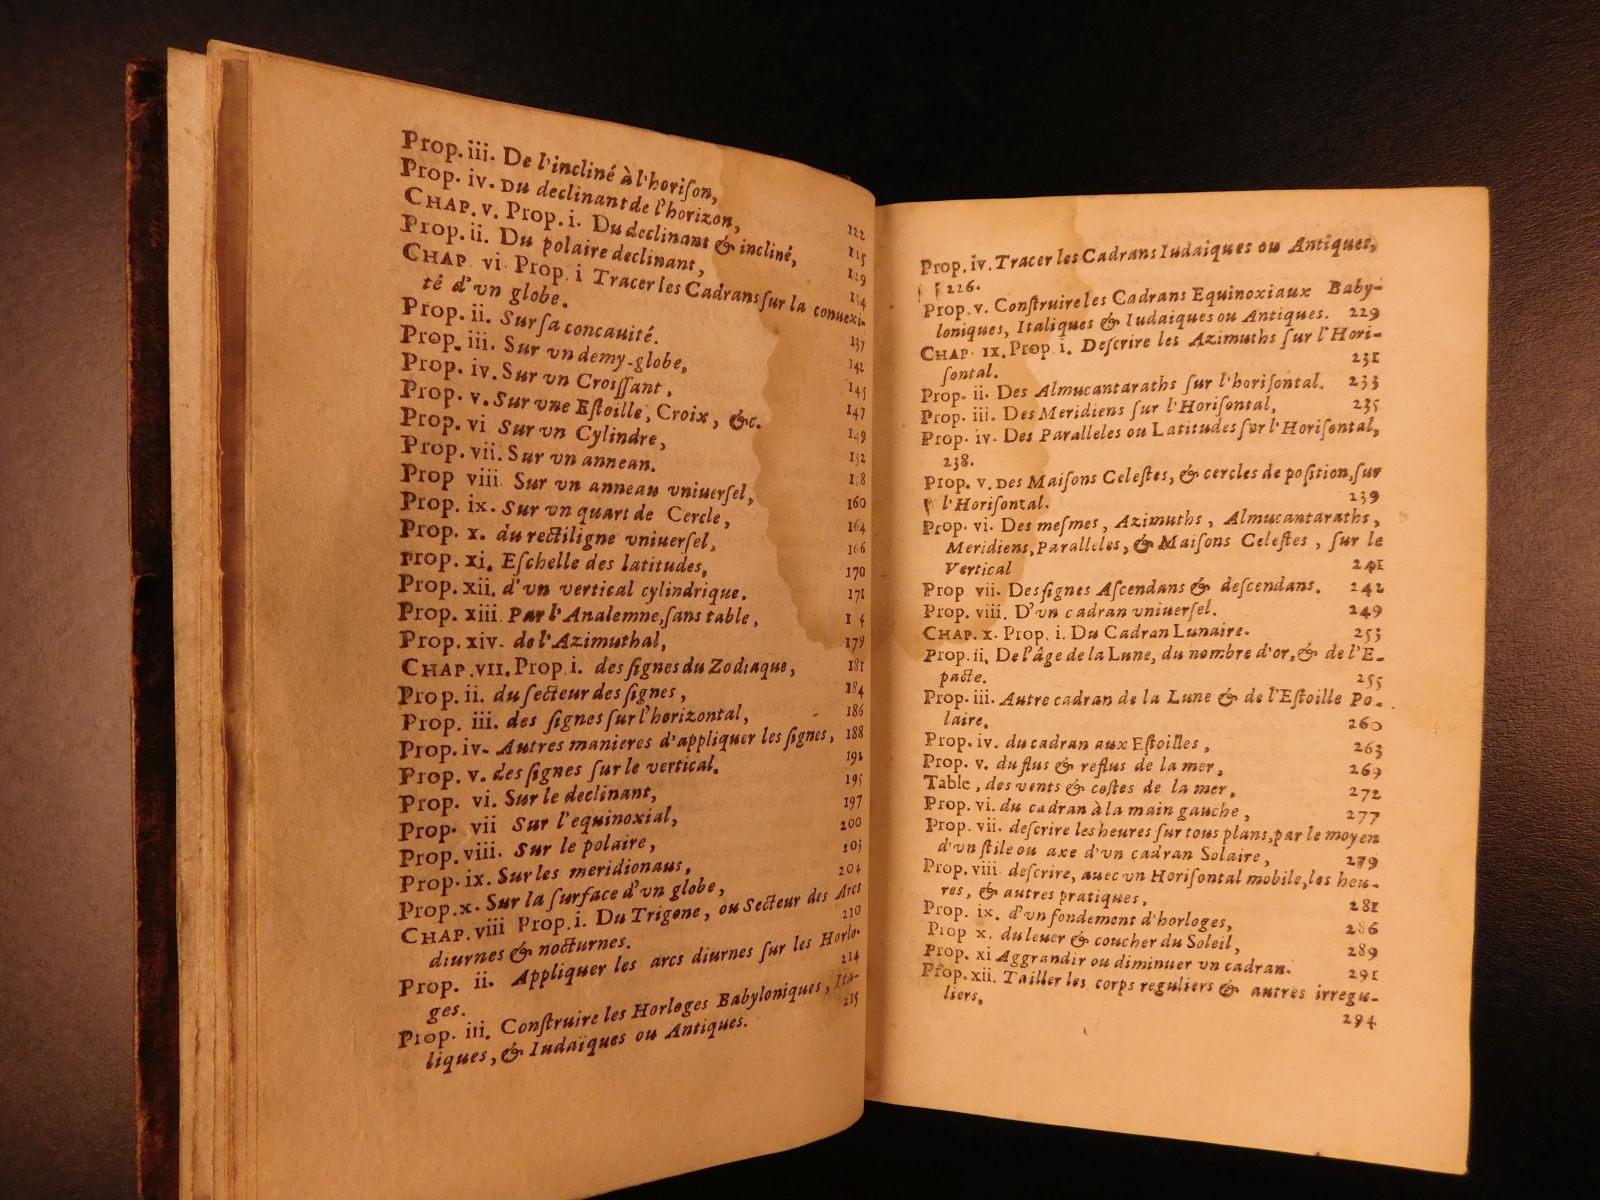 Prop. iii. De l'incliné à l'horiſon, 122
Prop. iv. Du declinant de l'horizon, 125
CHAP. v. Prop. i. Du declinant & incliné, 129
Prop. ii. Du polaire declinant, 134
CHAP. vi. Prop. i Tracer les Cadrans ſur la conuexi-
té d'vn globe. 137
Prop. ii. Sur ſa concauité. 142
Prop. iii. Sur vn demy-globe, 145
Prop. iv. Sur vn Croiſſant, 147
Prop. v. Sur vne Eſtoille, Croix, &c. 149
Prop. vi Sur vn Cylindre, 152
Prop. vii. Sur vn annean. 1 8
Prop viii Sur vn anneau vniuerſel, 160
Prop. ix. Sur vn quart de Cercle, 164
Prop. x. du rectiligne vniuerſel, 166
Prop. xi. Eſchelle des latitudes, 170
Prop. xii. d'vn vertical cylindrique. 171
Prop. xiii Par l'Analemne, ſans table, 1 4
Prop. xiv. de l'Azimuthal, 179
CHAP. VII. Prop. i. des ſignes du Zodiaque, 181
Prop. ii. du ſecteur des ſignes, 184
Prop. iii. des ſignes ſur l'horizontal, 186
Prop. iv. Autres manieres d'appliquer les ſignes, 188
Prop. v. des ſignes ſur le vertical. 191
Prop. vi. Sur le declinant, 195
Prop. vii Sur l'equinoxial, 197
Prop. viii. Sur le polaire, 200
Prop. ix. Sur les meridionaus, 203
Prop. x. Sur la surface d'vn globe, 204
CHAP. viii Prop. i. Du Trigone, ou Secteur des Arcs
diurnes & nocturnes. 210
Prop. ii. Appliquer les arcs diurnes ſur les Horlo-
ges. 214
Prop. iii. Conſtruire les Horloges Babyloniques, Ita-
liques, & Iudaïques ou Antiques. 215
Prop. iv. Tracer les Cadrans Iudaiques ou Antiques,
226.
Prop. v. Conſtruire les Cadrans Equinoxiaux Baby-
loniques, Italiques & Iudaiques ou Antiques. 229
CHAP. IX. Prop. i. Deſcrire les Azimuths ſur l'Hori-
ſontal. 231
Prop. ii. Des Almucantaraths ſur l'horiſontal. 233
Prop. iii. Des Meridiens ſur l'Horiſontal, 235
Prop. iv. Des Paralleles ou Latitudes ſur l'Horiſontal,
238.
Prop. v. Des Maiſons Celeſtes, & cercles de poſition, ſur
l'Horiſontal. 239
Prop. vi. Des meſmes, Azimuths, Almucantaraths,
Meridiens, Paralleles, & Maiſons Celeſtes, ſur le
Vertical 241
Prop. vii. Des ſignes Aſcendans & deſcendans. 242
Prop. viii. D'vn cadran vniuerſel. 249
CHAP. X. Prop. i. Du Cadran Lunaire. 253
Prop. ii. De l'âge de la Lune, du nombre d'or, & de l'E-
pacte. 255
Prop. iii. Autre cadran de la Lune & de l'Eſtoille Po-
laire, 260
Prop. iv. du cadran aux Eſtoilles, 263
Prop. v. du flus & reflus de la mer, 269
Table, des vents & coſtes de la mer, 272
Prop. vi. du cadran à la main gauche, 277
Prop. vii. deſcrire les heures ſur tous plans, par le moyen
d'vn ſtile ou axe d'vn cadran Solaire, 279
Prop. viii deſcrire, auec vn Horiſontal mobile, les heu-
res, & autres pratiques, 281
Prop. ix. d'vn fondement d'horloges, 286
Prop x. du leuer & coucher du Soleil, 289
Prop. xi Aggrandir ou diminuer vn cadran. 291
Prop. xii. Tailler les corps reguliers & autres irregu-
liers, 294